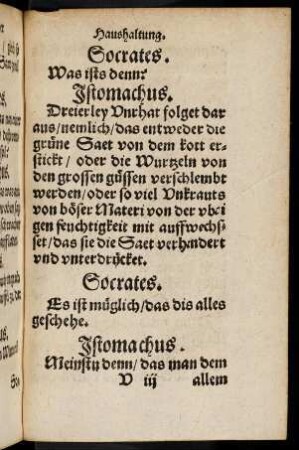 Haushaltung.
Socrates.
Was ists denn?
Jstomachus.
Dreierley Vnrhat folget dar
aus/nemlich/das entweder die
grüne Saet von dem kott er-
stickt/ oder die Wurtzeln von
den grossen güssen verschlembt
werden/oder so viel Vnkrauts
von böser Materi von der vbri
gen feuchtigkeit mit auffwechs-
set/das sie die Saet verhindert
vnd vnterdrücket.
Socrates.
Es ist müglich/das dis alles
geschehe.
Jstomachus.
Meinstu denn/das man dem
V iij allem